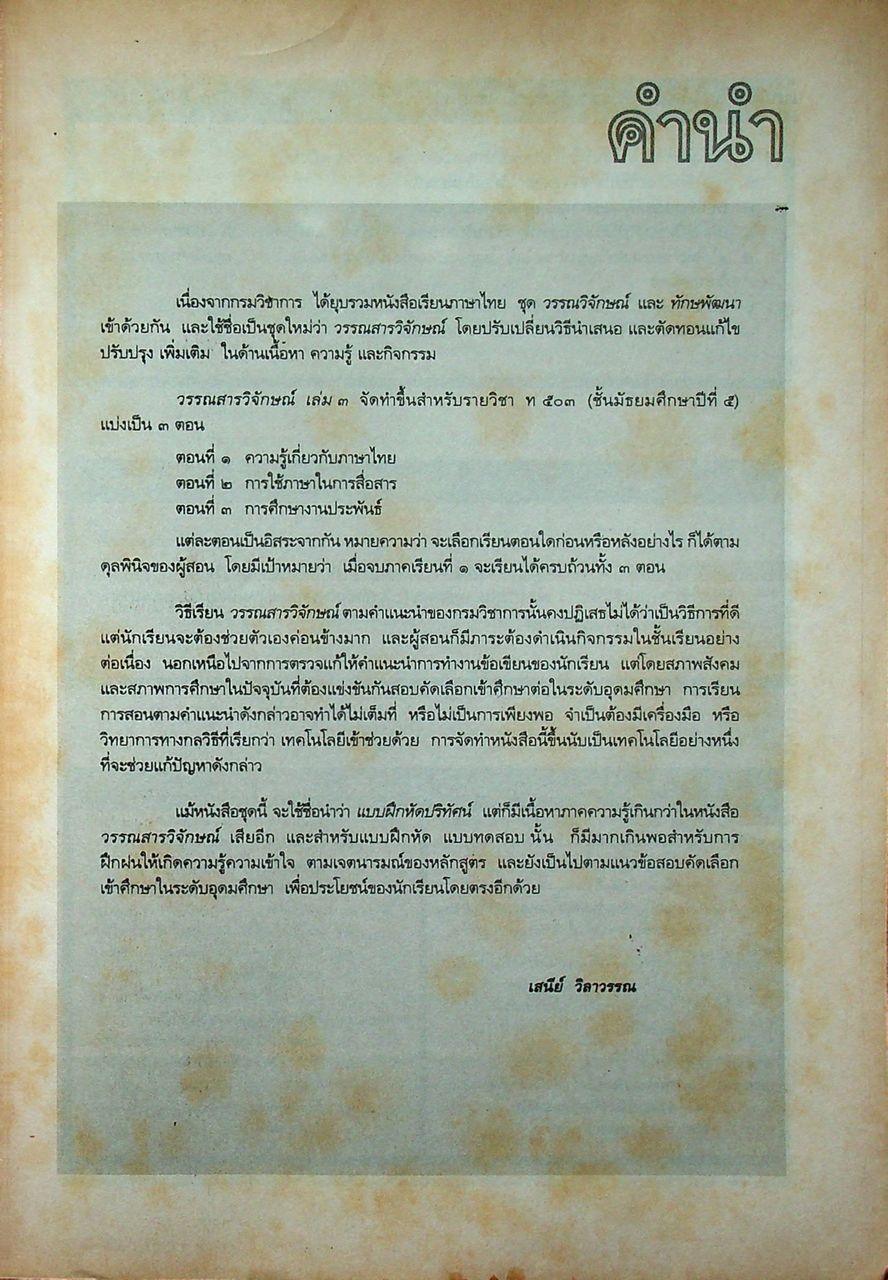 คำนำ
เนื่องจากกรมวิชาการ ได้ยุบรวมหนังสือเรียนภาษาไทย ชุด วรรณวิจักษณ์ และ ทักษพัฒนา
เข้าด้วยกัน และใช้ชื่อเป็นชุดใหม่ว่า วรรณสารวิจักษณ์ โดยปรับเปลี่ยนวิธีนำเสนอ และตัดทอนแก้ไข
ปรับปรุง เพิ่มเติม ในด้านเนื้อหา ความรู้ และกิจกรรม
วรรณสารวิจักษณ์ เล่ม ๓ จัดทำขึ้นสำหรับรายวิชา ท ๕๐๓ (ชั้นมัธยมศึกษาปีที่ ๕)
แบ่งเป็น ๓ ตอน
ตอนที่ ๑ ความรู้เกี่ยวกับภาษาไทย
ตอนที่ ๒ การใช้ภาษาในการสื่อสาร
ตอนที่ ๓ การศึกษางานประพันธ์
แต่ละตอนเป็นอิสระจากกัน หมายความว่า จะเลือกเรียนตอนใดก่อนหรือหลังอย่างไร ก็ได้ตาม
ดุลพินิจของผู้สอน โดยมีเป้าหมายว่า เมื่อจบภาคเรียนที่ ๑ จะเรียนได้ครบถ้วนทั้ง ๓ ตอน
วิธีเรียน วรรณสารวิจักษณ์ ตามคำแนะนำของกรมวิชาการนั้นคงปฏิเสธไม่ได้ว่าเป็นวิธีการที่ดี
แต่นักเรียนจะต้องช่วยตัวเองค่อนข้างมาก และผู้สอนก็มีภาระต้องดำเนินกิจกรรมในชั้นเรียนอย่าง
ต่อเนื่อง นอกเหนือไปจากการตรวจแก้ให้คำแนะนำการทำงานข้อเขียนของนักเรียน แต่โดยสภาพสังคม
และสภาพการศึกษาในปัจจุบันที่ต้องแข่งขันกันสอบคัดเลือกเข้าศึกษาต่อในระดับอุดมศึกษา การเรียน
การสอนตามคำแนะนำดังกล่าวอาจทำได้ไม่เต็มที่ หรือไม่เป็นการเพียงพอ จำเป็นต้องมีเครื่องมือ หรือ
วิทยาการทางกลวิธีที่เรียกว่า เทคโนโลยีเข้าช่วยด้วย การจัดทำหนังสือนี้ขึ้นนับเป็นเทคโนโลยีอย่างหนึ่ง
ที่จะช่วยแก้ปัญหาดังกล่าว
แม้หนังสือชุดนี้ จะใช้ชื่อนำว่า แบบฝึกหัดปริทัศน์ แต่ก็มีเนื้อหาภาคความรู้เกินกว่าในหนังสือ
วรรณสารวิจักษณ์ เสียอีก และสำหรับแบบฝึกหัด แบบทดสอบ นั้น ก็มีมากเกินพอสำหรับการ
ฝึกฝนให้เกิดความรู้ความเข้าใจ ตามเจตนารมณ์ของหลักสูตร และยังเป็นไปตามแนวข้อสอบคัดเลือก
เข้าศึกษาในระดับอุดมศึกษา เพื่อประโยชน์ของนักเรียนโดยตรงอีกด้วย
เสนีย์ วิลาวรรณ